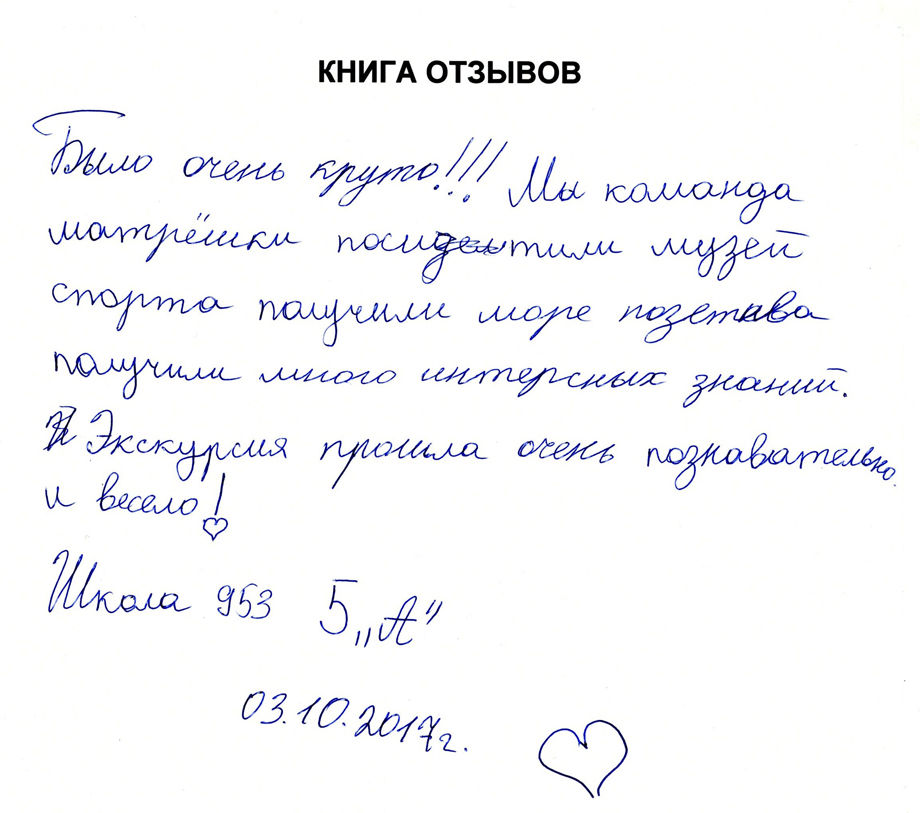 КНИГА ОТЗЫВОВ
Было очень круто!!! Мы команда
матрёшки посидтили музей
спорта получили море позетива
получили много интерсных знаний.
Экскурсия прошла очень познавательно.
и весело!
Школа 953 5 „А"
03.10.2017г.